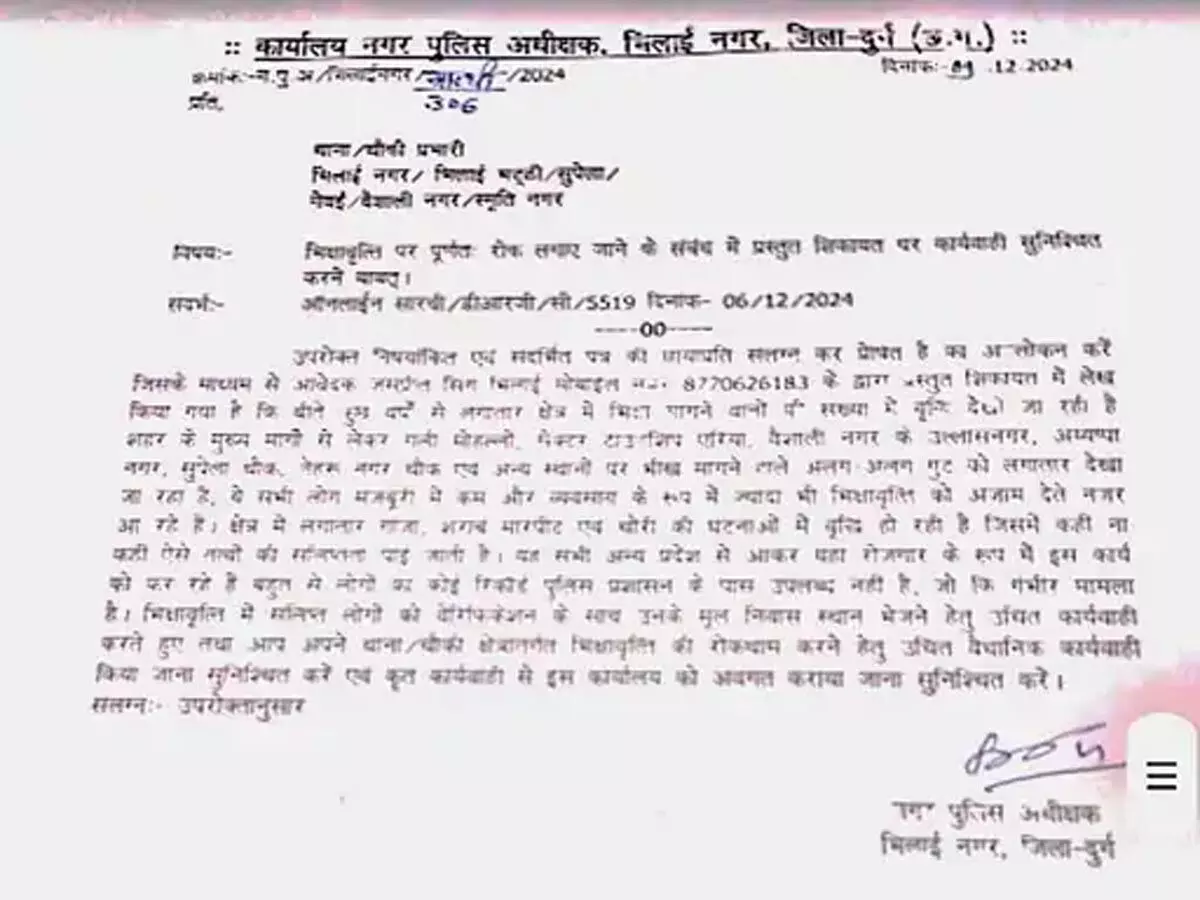 :: कार्यालय नगर पुलिस अधीक्षक, भिलाई नगर, जिला-दुर्ग (छ.ग.) ::
क्रमांकः-न.पु.अ/भिलाईनगर/ /2024 दिनांकः- .12.2024
306
प्रति,
थाना/चौकी प्रभारी
भिलाई नगर/ भिलाई भट्ठी/सुपेला/
नेवई/वैशाली नगर/स्मृति नगर
विषयः- भिक्षावृत्ति पर पूर्णतः रोक लगाए जाने के संबंध में प्रस्तुत शिकायत पर कार्यवाही सुनिश्चित
करने बाबत्।
संदर्भः- ऑनलाईन सारथी/डीआरजी/सी/5519 दिनांक- 06/12/2024
----00----
उपरोक्त विषयांकित एवं संदर्भित पत्र की छायाप्रति संलग्न कर प्रेषित है का अवलोकन करें
जिसके माध्यम से आवेदक सिंग भिलाई मोबाईल नंबर 8770626183 के द्वारा प्रस्तुत शिकायत में लेख
किया गया है कि बीते कुछ वर्षों से लगातार क्षेत्र में भिक्षा मांगने वालों की संख्या में वृद्धि देखी जा रही है
शहर के मुख्य मार्गों से लेकर गली मोहल्लो, सेक्टर टाउनशिप एरिया, वैशाली नगर के उल्लासनगर, अय्यप्पा
नगर, सुपेला चौक, नेहरू नगर चौक एवं अन्य स्थानों पर भीख मांगने वाले अलग-अलग गुट को लगातार देखा
जा रहा है, ये सभी लोग मजबूरी में कम और व्यवसाय के रूप में ज्यादा भी भिक्षावृत्ति को अंजाम देते नजर
आ रहे है। क्षेत्र में लगातार गांजा, शराब मारपीट एवं चोरी की घटनाओं में वृद्धि हो रही है जिसमें कहीं ना
कहीं ऐसे तत्वों की संलिप्तता पाई जाती है। यह सभी अन्य प्रदेश से आकर यहां रोजगार के रूप में इस कार्य
को कर रहे है बहुत से लोगों का कोई रिकॉर्ड पुलिस प्रशासन के पास उपलब्ध नहीं है, जो कि गंभीर मामला
है। भिक्षावृत्ति में संलिप्त लोगों को वेरिफिकेशन के साथ उनके मूल निवास स्थान भेजने हेतु उचित कार्यवाही
करते हुए तथा आप अपने थाना/चौकी क्षेत्रांतर्गत भिक्षावृत्ति की रोकथाम करने हेतु उचित वैधानिक कार्यवाही
किया जाना सुनिश्चित करें एवं कृत कार्यवाही से इस कार्यालय को अवगत कराया जाना सुनिश्चित करें।
संलग्नः- उपरोक्तानुसार
नगर पुलिस अधीक्षक
भिलाई नगर, जिला-दुर्ग